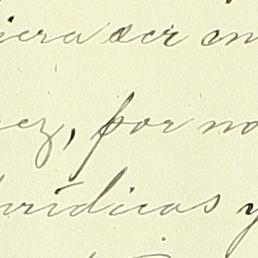 iera ser en
ez, por no
urídicas y